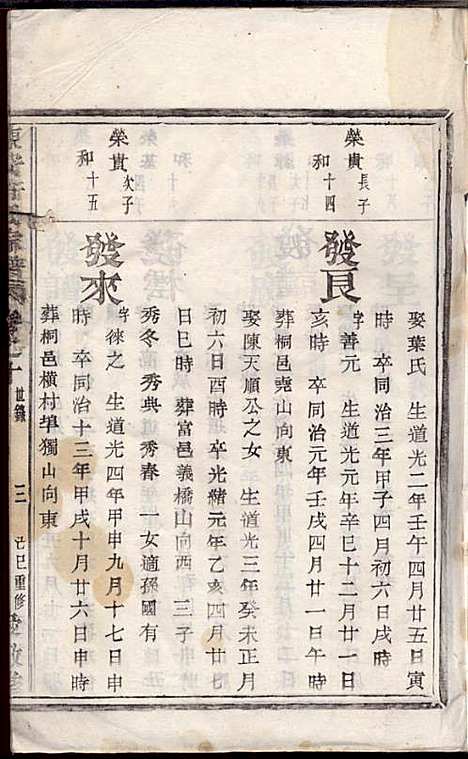 娶葉氏 生道光二年壬午四月廿五日寅
時 卒同治三年甲子四月初六日戌時
榮貴長子
和十四
發良
字善元 生道光元年辛巳十二月廿一日
亥時 卒同治元年壬戌四月廿一日午時
葬桐邑堯山向東
娶陳天順公之女 生道光三年癸未正月
初六日酉時 卒光緒元年乙亥四月廿七
日巳時 葬富邑義橋山向西 三子
秀冬 秀典 道秀春 一女適孫國有
榮貴次子
和十五
發來
字徠之 生道光四年甲申九月十七日申
時 卒同治十三年甲戌十月廿六日申時
葬桐邑橫村埠獨山向東
世錄 三 己巳重修